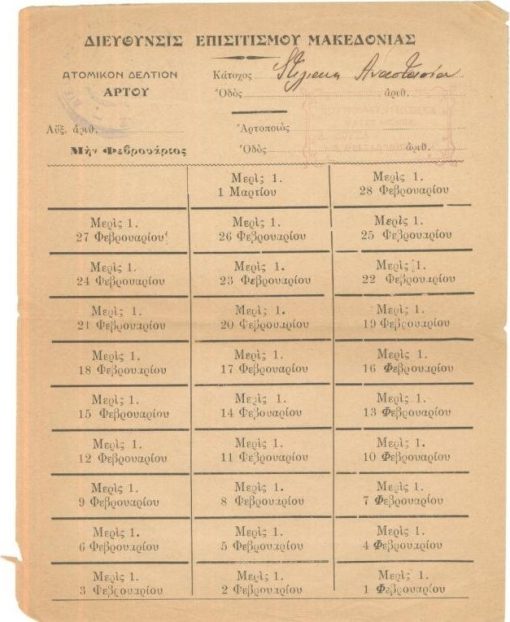 ΔΙΕΥΘΥΝΣΙΣ ΕΠΙΣΙΤΙΣΜΟΥ ΜΑΚΕΔΟΝΙΑΣ
ΑΤΟΜΙΚΟΝ ΔΕΛΤΙΟΝ Κάτοχος
ΑΡΤΟΥ Ὁδὸς ἀριθ.
Αὔξ. ἀριθ. Ἀρτοποιὸς
Μὴν Φεβρουάριος Ὁδὸς ἀριθ.
Μερὶς 1. Μερὶς 1.
1 Μαρτίου 28 Φεβρουαρίου
Μερὶς 1. Μερὶς 1. Μερὶς 1.
27 Φεβρουαρίου 26 Φεβρουαρίου 25 Φεβρουαρίου
Μερὶς 1. Μερὶς 1. Μερὶς 1.
24 Φεβρουαρίου 23 Φεβρουαρίου 22 Φεβρουαρίου
Μερὶς 1. Μερὶς 1. Μερὶς 1.
21 Φεβρουαρίου 20 Φεβρουαρίου 19 Φεβρουαρίου
Μερὶς 1. Μερὶς 1. Μερὶς 1.
18 Φεβρουαρίου 17 Φεβρουαρίου 16 Φεβρουαρίου
Μερὶς 1. Μερὶς 1. Μερὶς 1.
15 Φεβρουαρίου 14 Φεβρουαρίου 13 Φεβρουαρίου
Μερὶς 1. Μερὶς 1. Μερὶς 1.
12 Φεβρουαρίου 11 Φεβρουαρίου 10 Φεβρουαρίου
Μερὶς 1. Μερὶς 1. Μερὶς 1.
9 Φεβρουαρίου 8 Φεβρουαρίου 7 Φεβρουαρίου
Μερὶς 1. Μερὶς 1. Μερὶς 1.
6 Φεβρουαρίου 5 Φεβρουαρίου 4 Φεβρουαρίου
Μερὶς 1. Μερὶς 1. Μερὶς 1.
3 Φεβρουαρίου 2 Φεβρουαρίου 1 Φεβρουαρίου